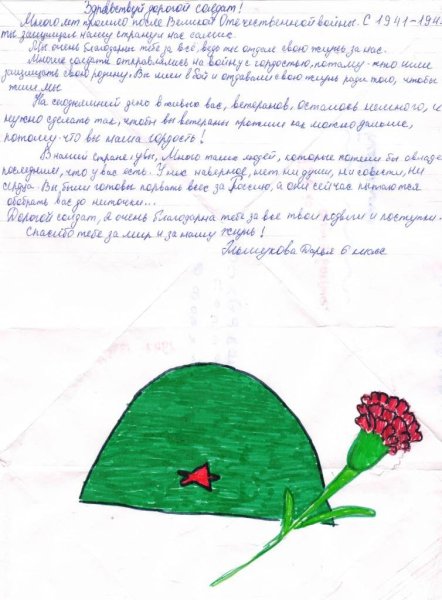 Здравствуй дорогой солдат!
Много лет прошло после Великой Отечественной войны. С 1941-194
ты защищал нашу страну и нас самих.
Мы очень благодарны тебе за всё, ведь ты отдал свою жизнь за нас.
Многие солдаты отправлялись на войну с гордостью, потому-что шли
защищать свою родину. Вы шли в бой и отдавали свою жизнь ради того, чтобы
жили мы.
На сегодняшний день в живых вас, ветеранов, осталось немного, и
нужно сделать так, чтобы вы ветераны прожили как можно дольше,
потому-что вы наша гордость!
В нашей стране, увы, много таких людей, которые хотели бы овладе
последним, что у вас есть. У них наверное, нет ни души, ни совести, ни
сердца. Вы были готовы порвать всех за Россию, а они сейчас пытаются
обобрать вас до ниточки...
Дорогой солдат, я очень благодарна тебе за все твои подвиги и поступки.
Спасибо тебе за мир и за нашу жизнь!
Дарья 6 класс